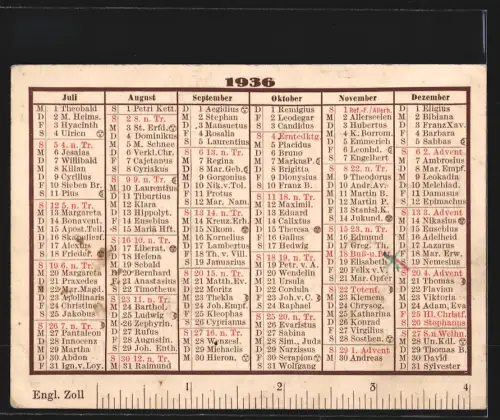 1936
Juli
M 1 Theobald
D 2 M. Heims.
F 3 Hyacinth
S 4 Ulrich
S 5 4. n. Tr.
M 6 Jesaja
D 7 Willibald
M 8 Kilian
D 9 Cyrillus
F 10 Sieben Br.
S 11 Pius
S 12 5. n. Tr.
M 13 Margareta
D 14 Bonavent.
M 15 Apost. Teil.
D 16
F 17 Alexius
S 18
S 19 6. n. Tr.
M 20 Margareta
D 21 Praxedes
M 22 Mar. Magd.
D 23 Apollinaris
F 24 Christine
S 25 Jakobus
S 26 7. n. Tr.
M 27 Pantaleon
D 28 Innocenz
M 29 Martha
D 30 Abdon
F 31 Ign. v. Loy.
August
S 1 Petri Kett.
S 2 8. n. Tr.
M 3 St. Erfd.
D 4 Dominikus
M 5 M. Schnee
D 6 Verkl. Chr.
F 7 Cajetanus
S 8 Cyriakus
S 9 9. n. Tr.
M 10 Laurentius
D 11 Tiburtius
M 12 Klara
D 13 Hippolyt.
F 14 Eusebius
S 15 Mariä Hft.
S 16 10. n. Tr.
M 17 Liberat.
D 18 Helena
M 19 Sebald
D 20 Bernhard
F 21 Anastasius
S 22 Timotheus
S 23 11. n. Tr.
M 24 Barthol.
D 25 Ludwig
M 26 Zephyrin
D 27 Rufus
F 28 Augustin.
S 29 Joh. Enth.
S 30 12. n. Tr.
M 31 Raimund
September
D 1 Aegidius
M 2 Stephan
D 3 Mansuetus
F 4 Rosalia
S 5 Laurentius
S 6 13. n. Tr.
M 7 Regina
D 8 Mar. Geb.
M 9 Gorgonius
D 10 Nik. v. Tol.
F 11 Protus
S 12 Mar. Nam.
S 13 14. n. Tr.
M 14 Kreuz. Erh.
D 15 Nikom.
M 16 Kornelius
D 17 Lambertus
F 18 Th. v. Vill.
S 19 Januarius
S 20 15. n. Tr.
M 21 Matth. Ev.
D 22 Moritz
M 23 Thekla
D 24 Joh. Empf.
F 25 Kleophas
S 26 Cyprianus
S 27 16. n. Tr.
M 28 Wenzesl.
D 29 Michaelis
M 30 Hieron.
Oktober
D 1 Remigius
F 2 Leodegar
S 3 Candidus
S 4 Erntedktg.
M 5 Placidus
D 6 Bruno
M 7 Markus P.
D 8 Brigitta
F 9 Dionysius
S 10 Franz B.
S 11 18. n. Tr.
M 12 Maximil.
D 13 Eduard
M 14 Calixtus
D 15 Theresa
F 16 Gallus
S 17 Hedwig
S 18 19. n. Tr.
M 19 Petr. v. A.
D 20 Wendelin
M 21 Ursula
D 22 Cordula
F 23 Joh. v. C.
S 24 Raphael
S 25 20. n. Tr.
M 26 Evaristus
D 27 Sabina
M 28 Sim., Juda
D 29 Narzissus
F 30 Serapion
S 31 Wolfgang
November
S 1 Ref.-F./Allerh.
M 2 Allerseelen
D 3 Hubertus
M 4 K. Borrom.
D 5 Emmerich
F 6 Leonhd.
S 7 Engelbert
S 8 22. n. Tr.
M 9 Theodorus
D 10 Andr. Av.
M 11 Martin B.
D 12 Martin P.
F 13 Stanisl. K.
S 14 Jukund.
S 15 23. n. Tr.
M 16 Edmund
D 17 Greg. Th.
M 18 Buß-u.
D 19 Elisabeth
F 20 Felix v. V.
S 21 Mar. Opfer
S 22 Totenf.
M 23 Klemens
D 24 Chrysog.
M 25 Katharina
D 26 Konrad
F 27 Virgilius
S 28 Sosthen.
S 29 1. Advent
M 30 Andreas
Dezember
D 1 Eligius
M 2 Bibiana
D 3 Franz Xav.
F 4 Barbara
S 5 Sabbas
S 6 2. Advent
M 7 Ambrosius
D 8 Mar. Empf.
M 9 Leokadia
D 10 Melchiad.
F 11 Damasus
S 12 Epimachus
S 13 3. Advent
M 14 Nikasius
D 15 Eusebius
M 16 Adelheid
D 17 Lazarus
F 18 Mar. Erw.
S 19 Nemesius
S 20 4. Advent
M 21 Thomas
D 22 Flavian
M 23 Viktoria
D 24 Adam, Eva
F 25 Hl. Christf.
S 26 Stephanus
S 27 S. n. Weihn.
M 28 Un. Kdl.
D 29 Thomas B.
M 30 David
D 31 Sylvester
Engl. Zoll
1 2 3 4